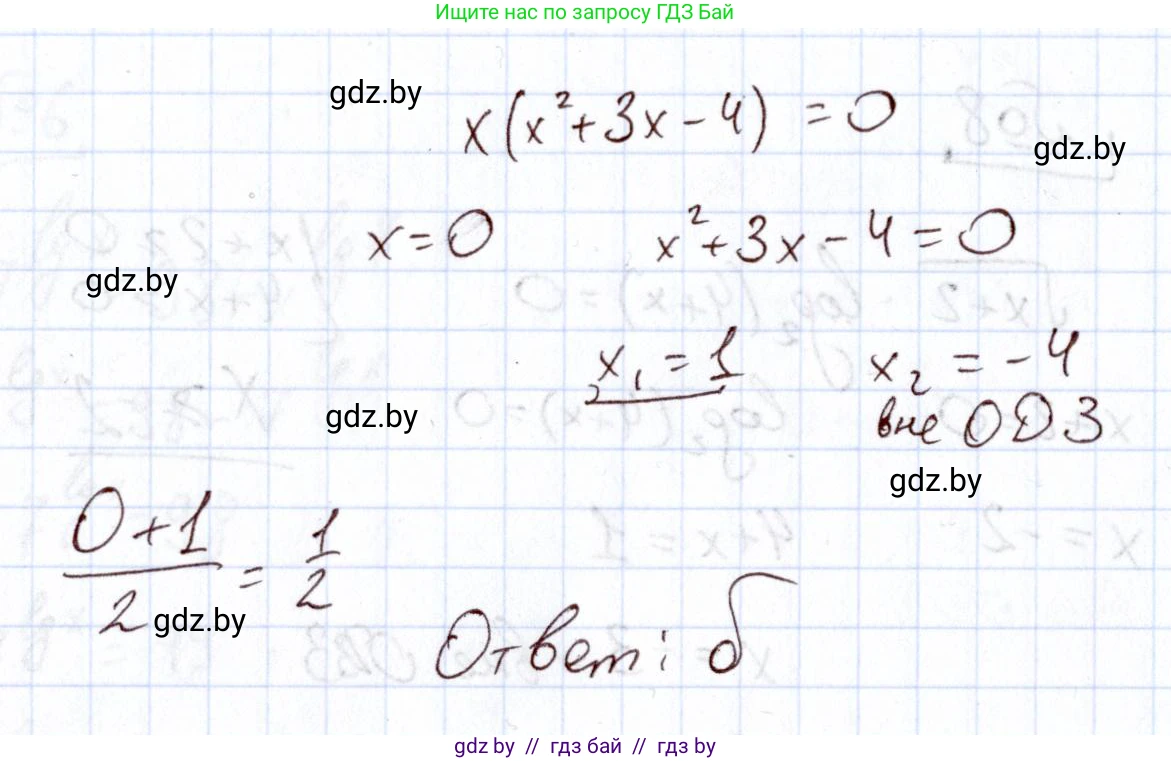 Ищите нас по запросу ГДЗ Бай
gdz.by
x(x²+3x-4) = 0
gdz.by
x=0 x²+3x-4=0
gdz.by
x₁ = 1 x₂ = -4
вне ОДЗ
gdz.by
gdz.by
(0+1)/2 = 1/2
gdz.by
Ответ: б
gdz by // гдз бай // гдз by